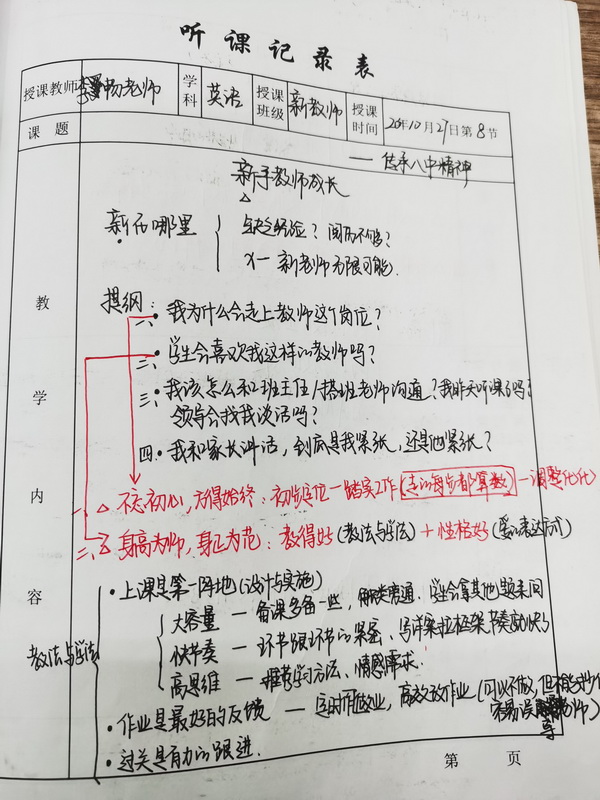 听课记录表
授课教师 李 畅老师 学科 英语 授课班级 新教师 授课时间 20年10月27日第8节
课题 —— 传承八中精神
新手教师成长
新在哪里
缺乏经验？阅历不够？
X— 新老师无限可能.
提纲：
一、我为什么会走上教师这个岗位？
二、学生会喜欢我这样的教师吗？
三、我该怎么和班主任/搭班老师沟通？我昨天听课了吗？
领导会找我谈话吗？
四、我和家长讲话，到底是我紧张，还是他紧张？
一、不忘初心，方得始终：初步定位—踏实工作(走的每步都算数)—调整优化
二、身高为师，身正为范：教得好(教法与学法)＋性格好(爱的表达方式)
教学内容
教法与学法
·上课是第一阵地(设计与实施)
大容量 — 备课多备一些，触类旁通、学生会拿其他题来问
快节奏 — 环节跟环节的紧密、写详案拉框架节奏就快了
高思维 — 推荐学习方法、情感需求.
·作业是最好的反馈 — 定时作业，高效放作业(可以不做，但不能抄
容易误导老师)
·过关是有力的跟进.
第 页